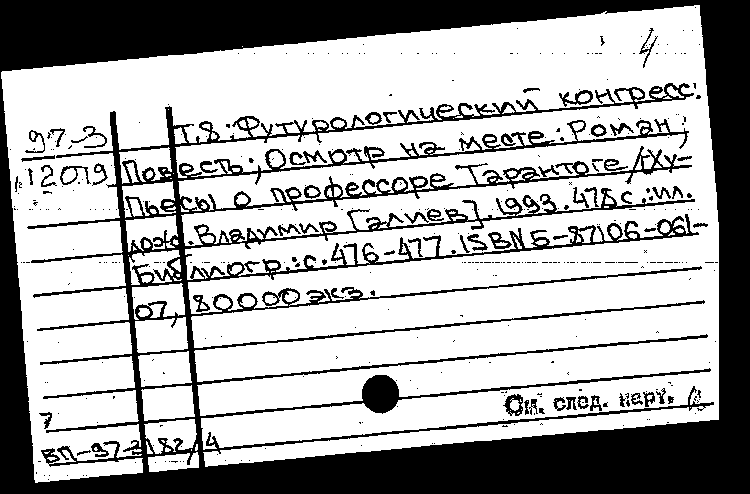 4
97-3 Т.8: Футурологический конгресс:
12019 Повесть; Осмотр на месте: Роман;
Пьесы о профессоре Тарантоге/[Ху-
дож. Владимир Галиев]. 1993. 478 с.: ил.
Библиогр.: с. 476-477. ISBN 5-87106-061-
07, 80000 экз.
7
См. след. карт.
БП-97-3182/4